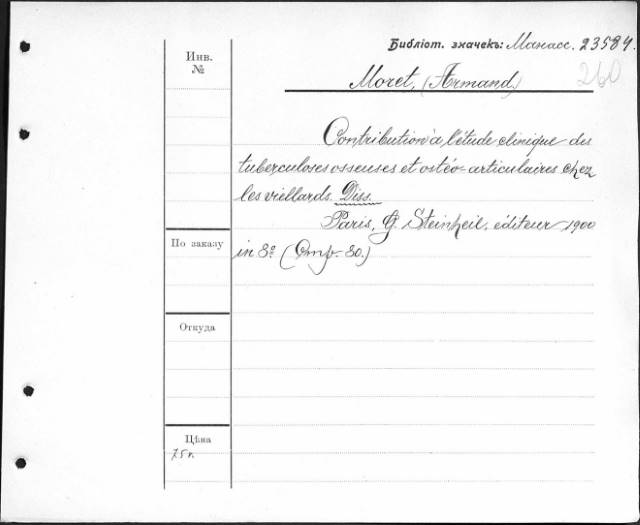 Библіот. значекъ: Манасс. 23584.
260
Инв.
№
Moret, (Armand.)
Contribution à l'étude clinique des
tuberculoses osseuses et ostéo-articulaires chez
les viellards. Diss.
Paris, G. Steinheil, éditeur 1900
По заказу
in 8º (Стр. 80.)
Откуда
Цѣна
75 к.